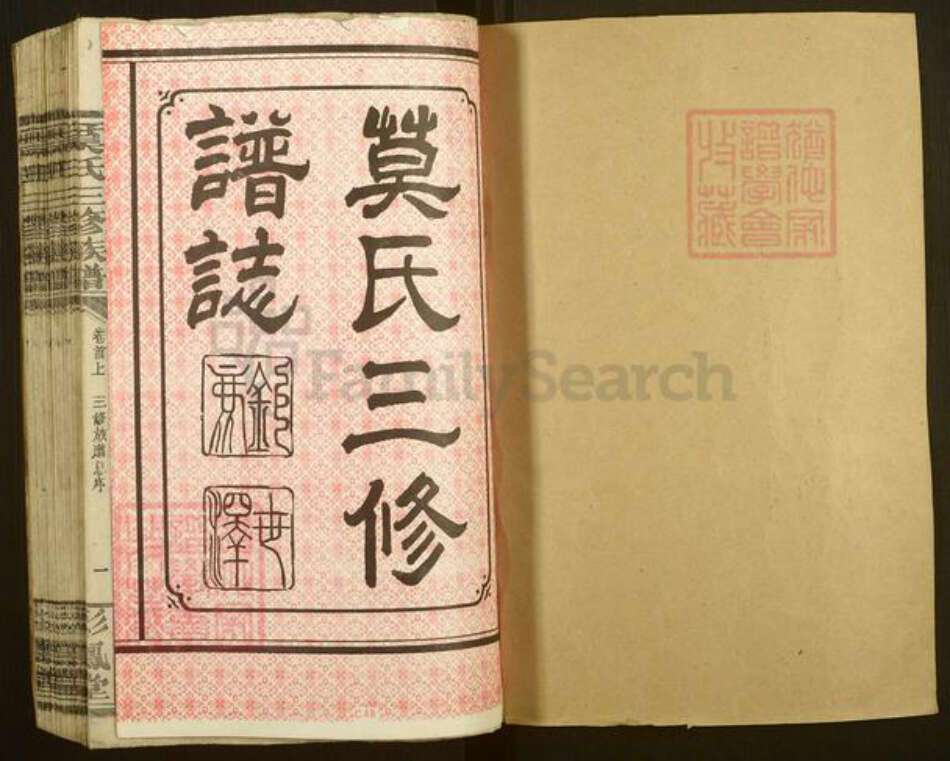 莫氏三修
譜誌
世澤
莫氏三修族譜
卷首上
三修族譜總序
一
彩鳳堂
譜學會
收藏
FamilySearch